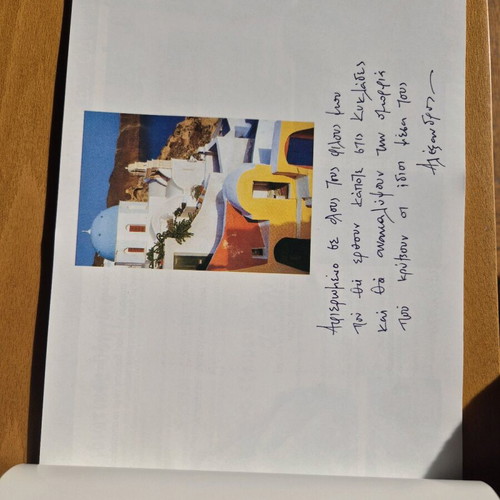 Αφιερωμένο σε όλους τους φίλους μου
που θα έρθουν κάποτε στις Κυκλάδες
και θα ανακαλύψουν την ομορφιά
που κρύβουν οι ίδιοι μέσα τους
Αλέξανδρος